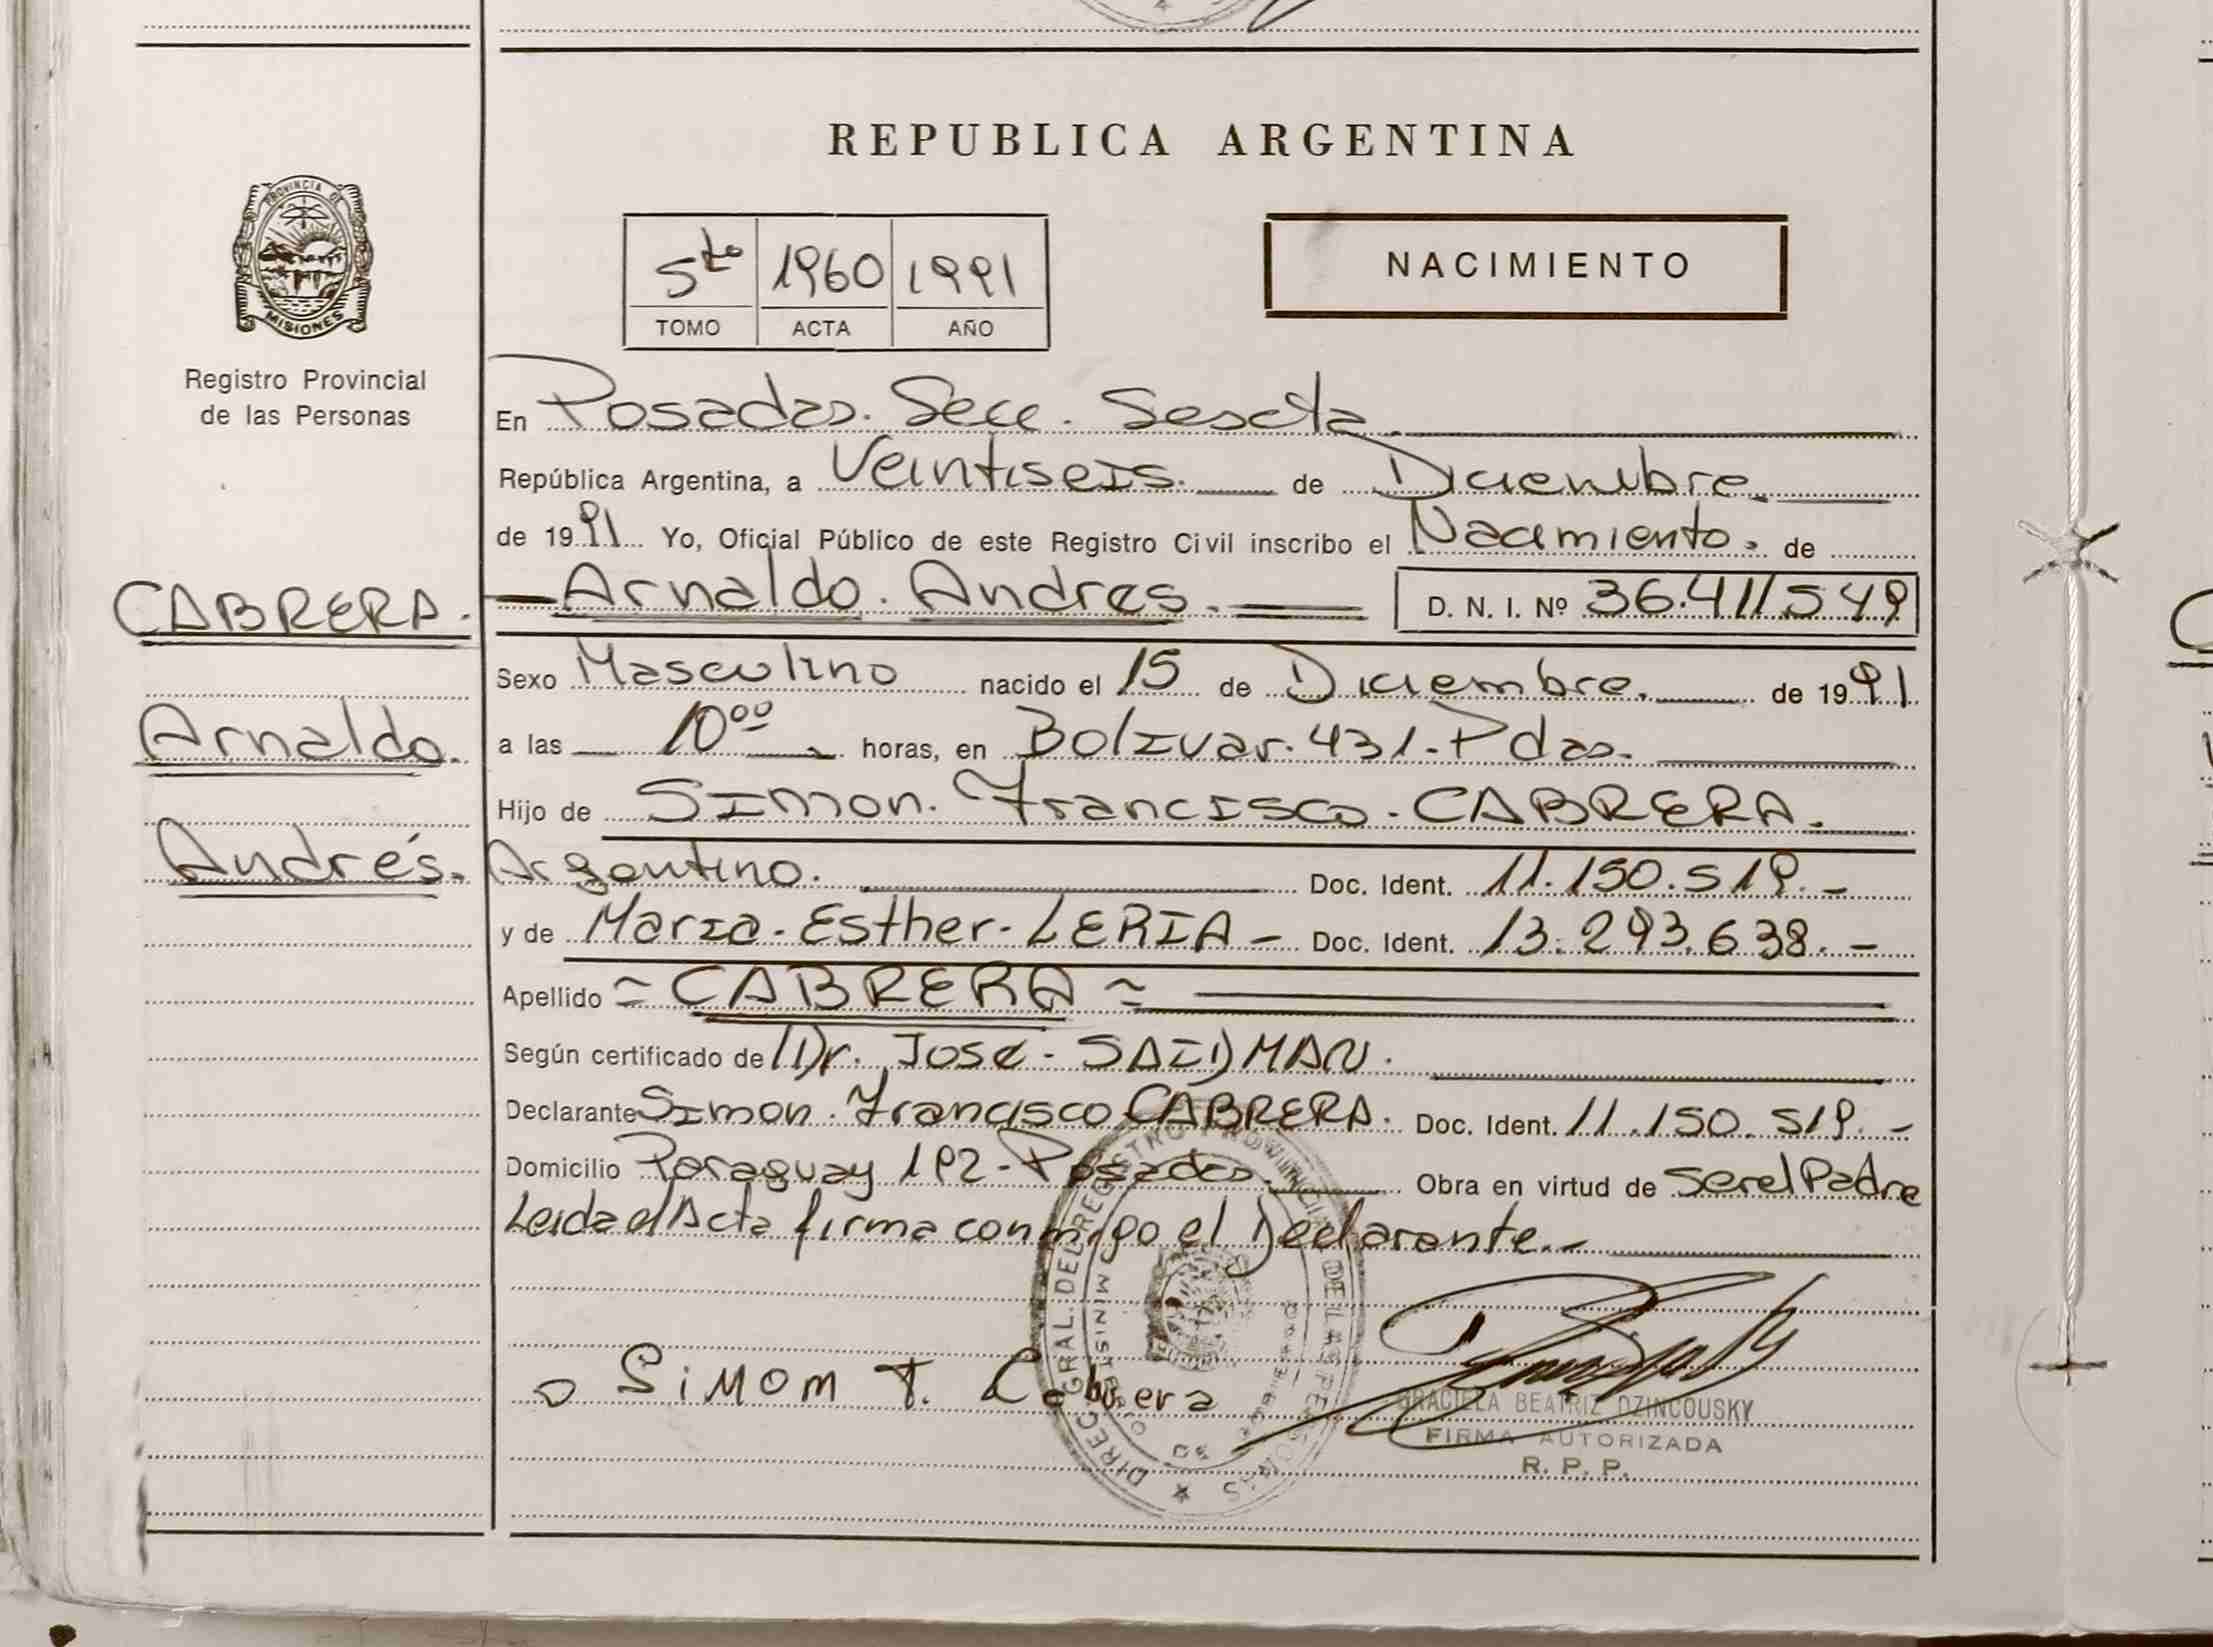 REPUBLICA ARGENTINA
PROVINCIA DE
MISIONES
Registro Provincial
de las Personas
5to 1960 1991
TOMO ACTA AÑO
NACIMIENTO
En Posadas. Secc. Sescta.
República Argentina, a Veintiseis. de Diciembre.
de 1991 Yo, Oficial Público de este Registro Civil inscribo el Nacimiento. de
CABRERA.
Arnaldo. Andres. D. N. I. Nº 36.411.549
Sexo Masculino nacido el 15 de Diciembre. de 1991
Arnaldo.
a las 10⁰⁰ horas, en Bolivar. 431. Pdas.
Hijo de Simon. Francisco. CABRERA.
Andrés.
Argentino. Doc. Ident. 11.150.519.-
y de Maria. Esther. LERIA - Doc. Ident. 13.293.638.-
Apellido = CABRERA =
Según certificado de Dr. José - SAIDMAN.
Declarante Simon. Francisco CABRERA. Doc. Ident. 11.150.519.-
Domicilio Paraguay 192 - Posadas. Obra en virtud de ser el Padre
Leida el Acta firma conmigo el Declarante.-
SiMOM F. Cabrera
GRACIELA BEATRIZ DZINCOUSKY
FIRMA AUTORIZADA
R. P. P.
DIREC. GRAL. DEL REGISTRO PROVINCIAL DE LAS PERSONAS
MINISTERIO DE GOBIERNO